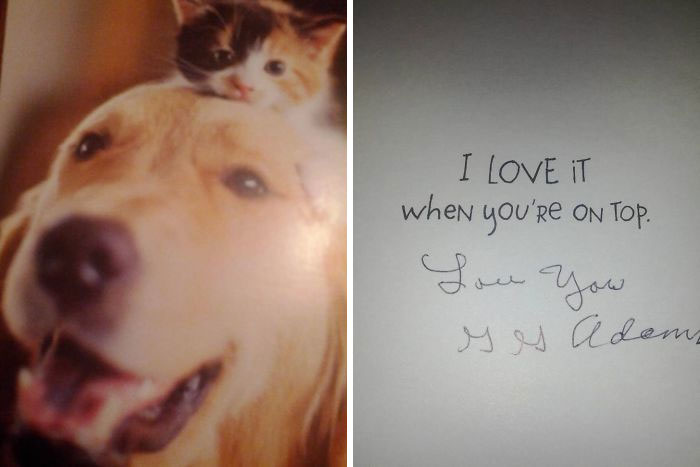 I LOVE iT
wheN yOU'Re ON TOP.
Love You
GG Adams